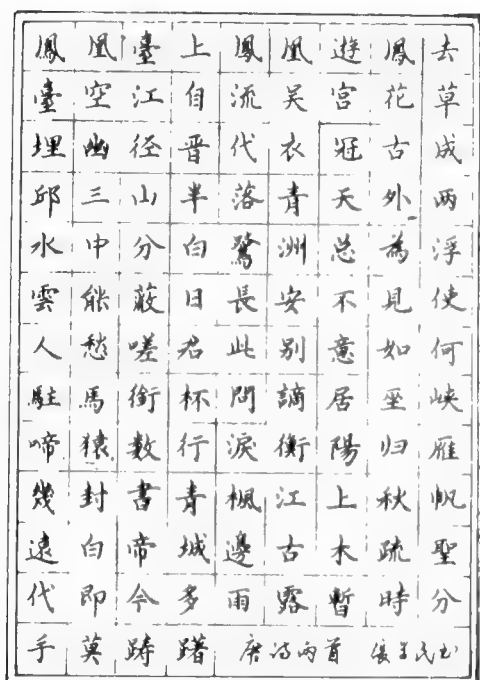 鳳凰臺上鳳凰遊鳳去
臺空江自流吳宮花草
埋幽径晋代衣冠古成
邱三山半落青天外两
水中分白鷺洲总為浮
雲能蔽日長安不見使
人愁嗟君此別意如何
駐馬銜杯問謫居巫峡
啼猿数行淚衡陽归雁
幾封書青楓江上秋帆
遠白帝城邊古木疏聖
代即今多雨露暫時分
手莫踌躇 唐诗两首